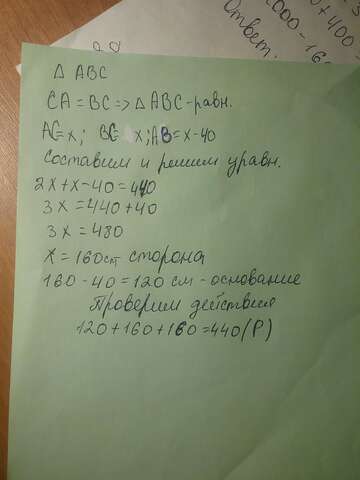 000 - 16
+ 400 -
Ответ.
Δ ABC
CA = BC => Δ ABC - равн.
AC = x; BC = x; AB = x - 40
Составим и решим уравн.
2x + x - 40 = 440
3x = 440 + 40
3x = 480
x = 160 см сторона
160 - 40 = 120 см - основание
Проверим действия
120 + 160 + 160 = 440 (P)